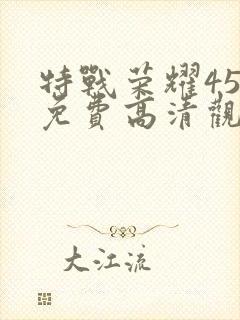 特戰荣耀45
免費高清觀
大江流